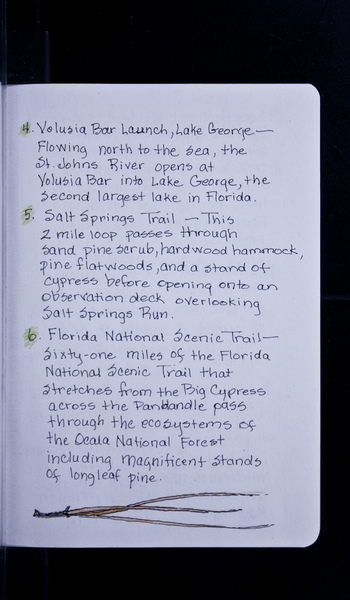 4. Volusia Bar Launch, Lake George—
Flowing north to the sea, the
St. Johns River opens at
Volusia Bar into Lake George, the
second largest lake in Florida.
5. Salt Springs Trail — This
2 mile loop passes through
sand pine scrub, hardwood hammock,
pine flatwoods, and a stand of
cypress before opening onto an
observation deck overlooking
Salt Springs Run.
6. Florida National Scenic Trail—
Sixty-one miles of the Florida
National Scenic Trail that
stretches from the Big Cypress
across the Panhandle pass
through the ecosystems of
the Ocala National Forest
including magnificent stands
of longleaf pine.